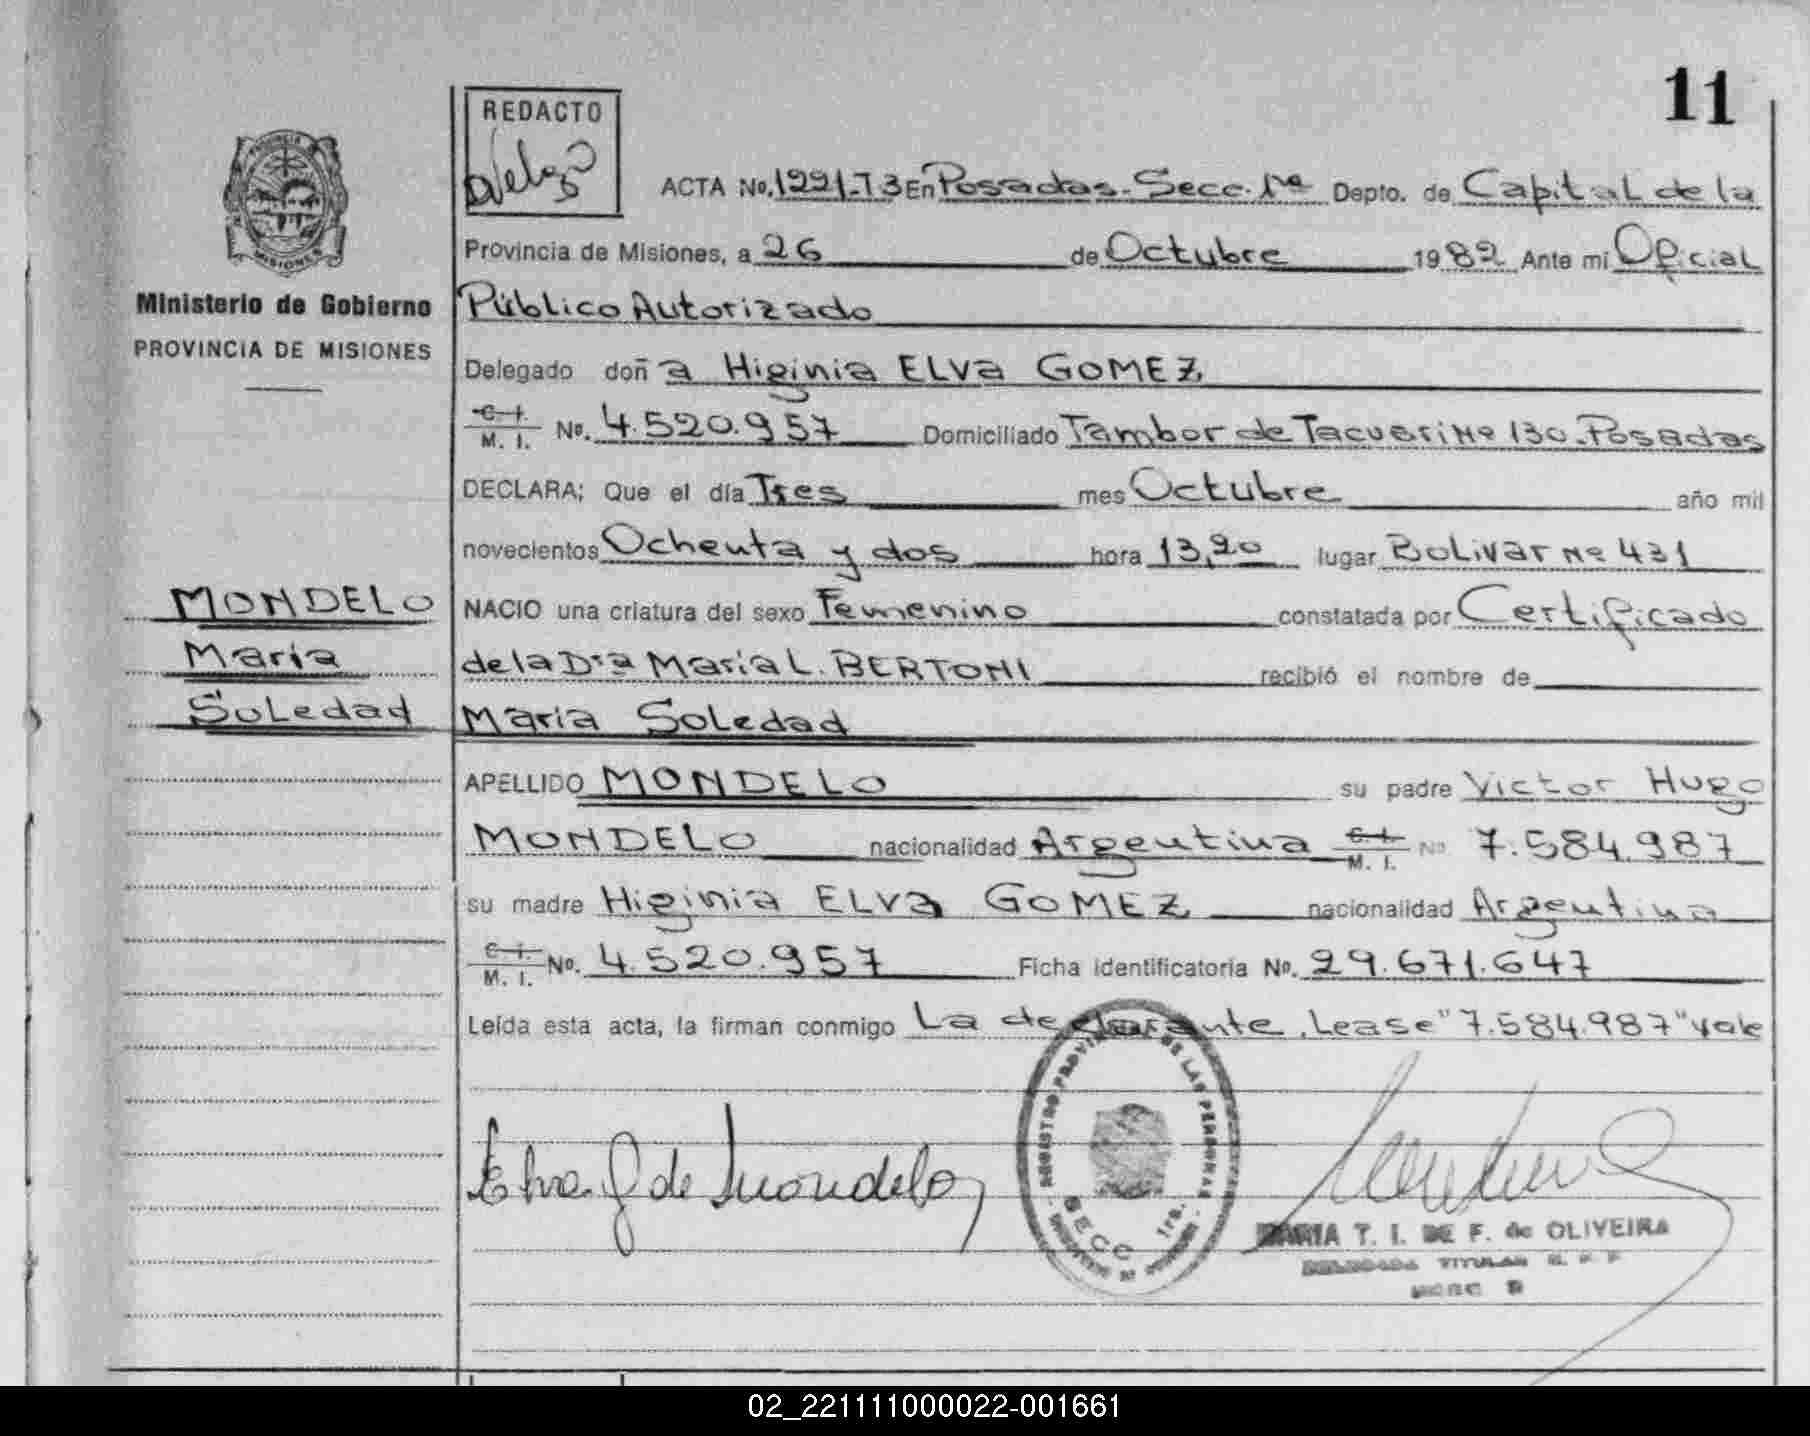 11
REDACTO
ACTA No. 1221-T3 En Posadas-Secc. 1ra Depto. de Capital de la
Provincia de Misiones, a 26 de Octubre 1982 Ante mi Oficial
Público Autorizado
Delegado doña Higinia ELVa GOMEZ
C. I.
M. I. No. 4.520.957 Domiciliado Tambor de Tacuari Nº 130-Posadas
DECLARA; Que el día Tres mes Octubre año mil
novecientos Ochenta y dos hora 13,20 lugar Bolivar Nº 431
NACIO una criatura del sexo Femenino constatada por Certificado
de la Dra Maria L. BERTONI recibió el nombre de
Maria Soledad
APELLIDO MONDELO su padre Victor Hugo
MONDELO nacionalidad Argentina C. I.
M. I. No 7.584.987
su madre Higinia ELVa GOMEZ nacionalidad Argentina
C. I.
M. I. No. 4.520.957 Ficha identificatoria No. 29.671.647
Leída esta acta, la firman conmigo La declarante. Lease "7.584.987" vale
PROVINCIA DE
MISIONES
Ministerio de Gobierno
PROVINCIA DE MISIONES
MONDELO
Maria
Soledad
Elva G de Mondelo
REGISTRO PROVINCIAL DE LAS PERSONAS
SECC 1ra.
MARIA T. I. DE F. de OLIVEIRA
DELEGADA TITULAR R. P. P.
02_221111000022-001661